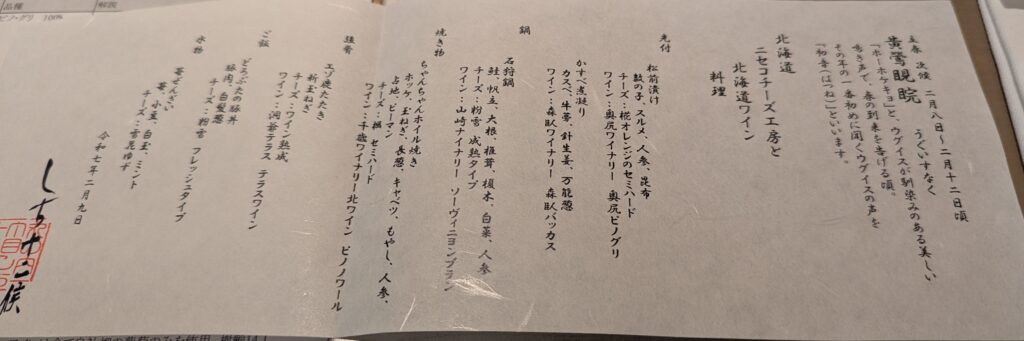 立春 次候 二月八日～二月十二日頃
黄鶯睍睆 うぐいすなく
「ホーホケキョ」と、ウグイスが馴染みのある美しい
鳴き声で、春の到来を告げる頃。
その年の一番初めに聞くウグイスの声を
「初音（はつね）」といいます。
北海道
ニセコチーズ工房と
北海道ワイン
料理
先付
松前漬け
数の子、スルメ、人参、昆布
チーズ：椛オレンジのセミハード
ワイン：奥尻ワイナリー 奥尻ピノグリ
かすべ煮凝り
カスベ、牛蒡、針生姜、万能葱
ワイン：森臥ワイナリー 森臥バッカス
鍋
石狩鍋
鮭、帆立、大根、椎茸、榎木、白菜、人参
チーズ：粉雪 成熟タイプ
ワイン：山崎ワイナリー ソーヴィニヨンブラン
焼き物
ちゃんちゃんホイル焼き
ホッケ、玉ねぎ、長葱、キャベツ、もやし、人参、
占地、ピーマン
チーズ：楓 セミハード
ワイン：千歳ワイナリー 北ワイン ピノノワール
強肴
エゾ鹿たたき
新玉ねぎ
チーズ：ワイン熟成
ワイン：洞爺テラス テラスワイン
ご飯
どろぶたの豚丼
豚肉、白髪葱
チーズ：粉雪 フレッシュタイプ
水物
苺ぜんざい
苺、小豆、白玉、ミント
チーズ：雪見ゆず
令和七年二月九日
しち十二候
品種
解説
ピノ・グリ 100%